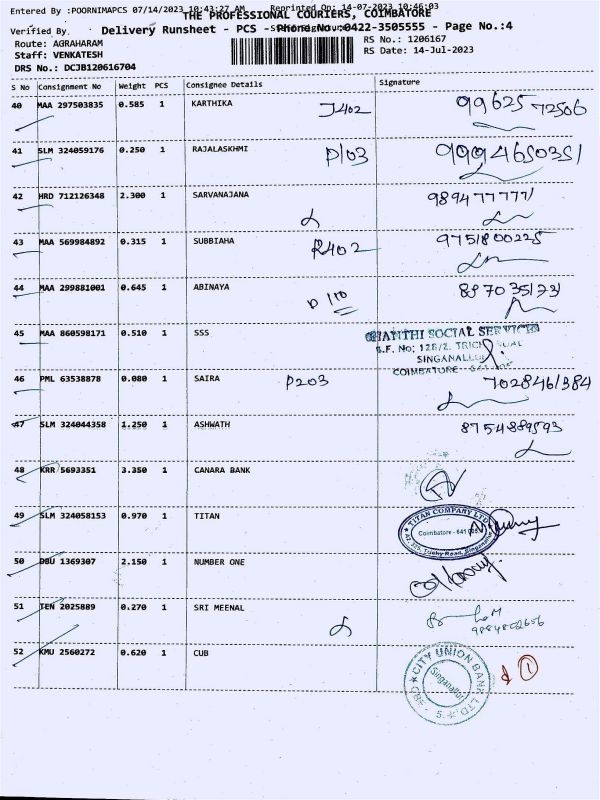 Entered By :POORNIMAPCS 07/14/2023 10:43:27 AM Reprinted On: 14-07-2023 10:46:03
THE PROFESSIONAL COURIERS, COIMBATORE
Verified By Delivery Runsheet - PCS - Phone No.:0422-3505555 - Page No.:4
Route: AGRAHARAM RS No.: 1206167
Staff: VENKATESH RS Date: 14-Jul-2023
DRS No.: DCJB120616704
S No Consignment No Weight PCS Consignee Details Signature
40 MAA 297503835 0.585 1 KARTHIKA J402 99625 72506
41 SLM 324059176 0.250 1 RAJALASKHMI D103 9994650351
42 HRD 712126348 2.300 1 SARVANAJANA 9894777771
43 MAA 569984892 0.315 1 SUBBIAHA R402 9751800225
44 MAA 299881001 0.645 1 ABINAYA D 110 8870351731
45 MAA 860598171 0.510 1 SSS SHANTHI SOCIAL SERVICES
S.F. No: 128/2, TRICHY
SINGANALLUR
COIMBATORE
46 PML 63538878 0.080 1 SAIRA P203 7028461384
47 SLM 324044358 1.250 1 ASHWATH 8754889593
48 KRR 5693351 3.350 1 CANARA BANK
49 SLM 324058153 0.970 1 TITAN TITAN COMPANY LTD
Coimbatore - 641 005
Trichy Road, Singanallur
50 DBU 1369307 2.150 1 NUMBER ONE
51 TEN 2025889 0.270 1 SRI MEENAL 9884802656
52 KMU 2560272 0.620 1 CUB CITY UNION BANK LTD.
Singanallur
1